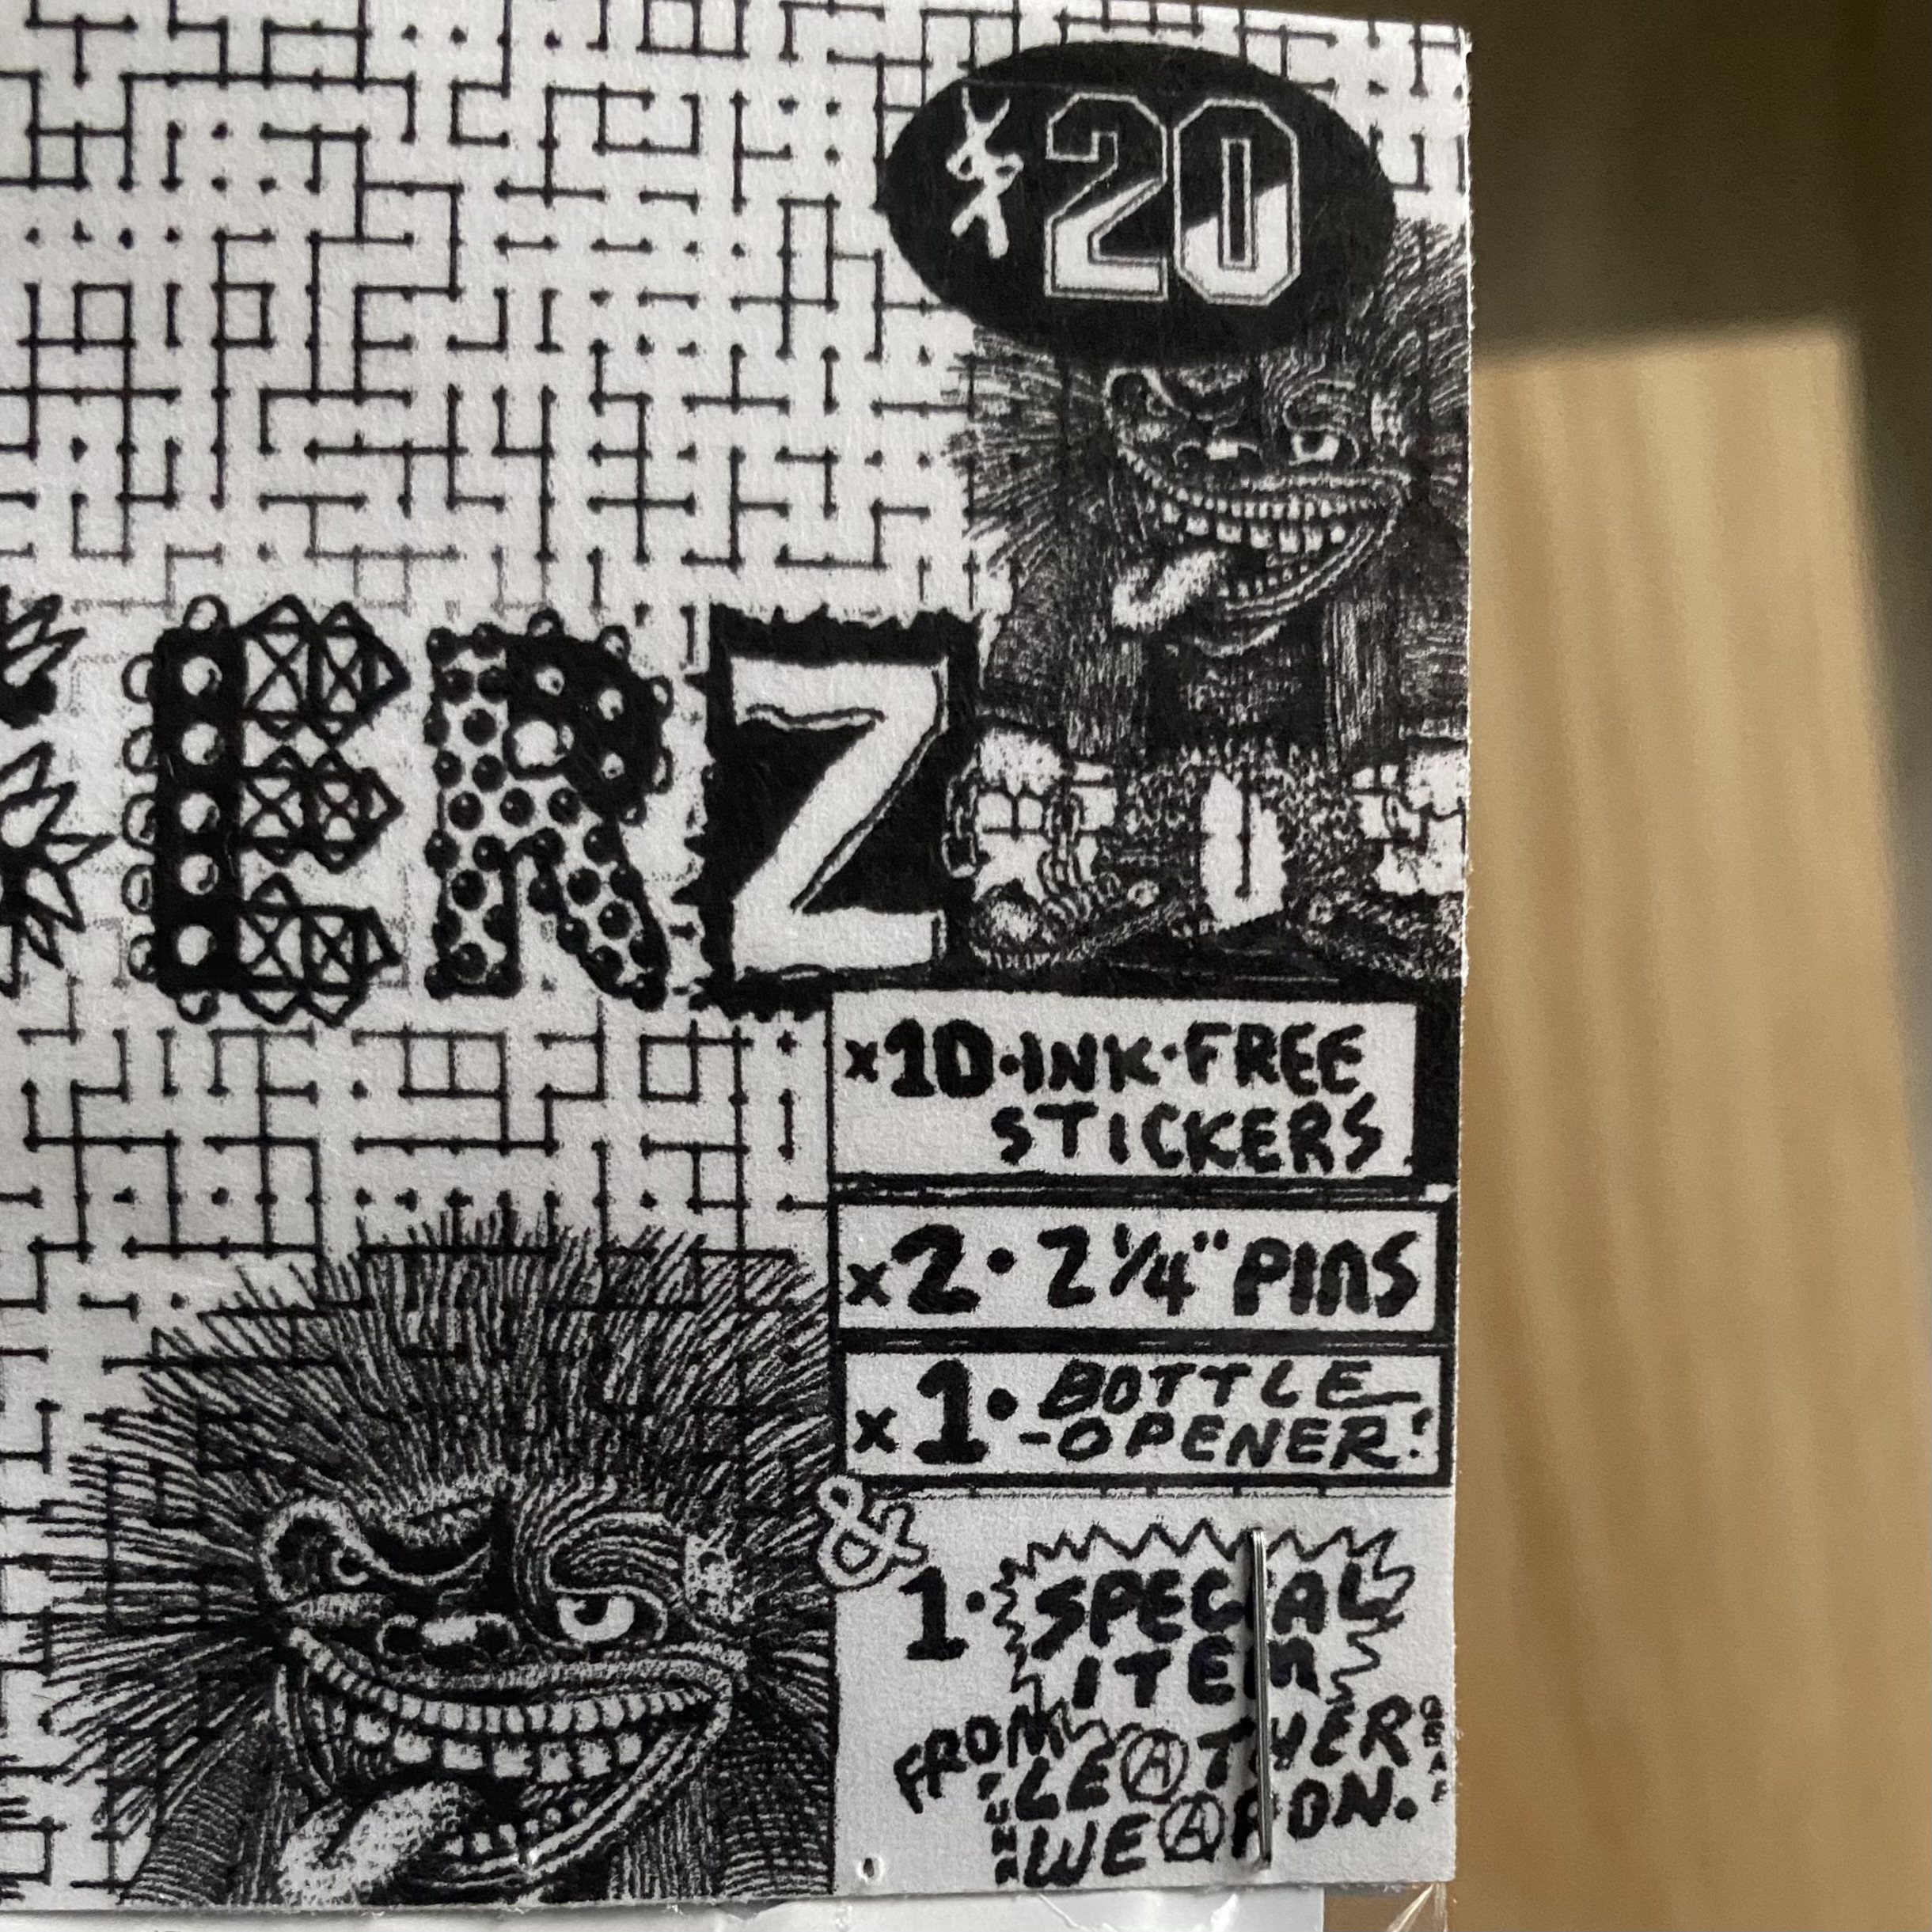 $20
ERZ
x10·INK·FREE
STICKERS
x2·2¼" PINS
x1·BOTTLE
-OPENER!
&
1·SPECIAL
ITEM
FROM
LEATHER
WEAPON.